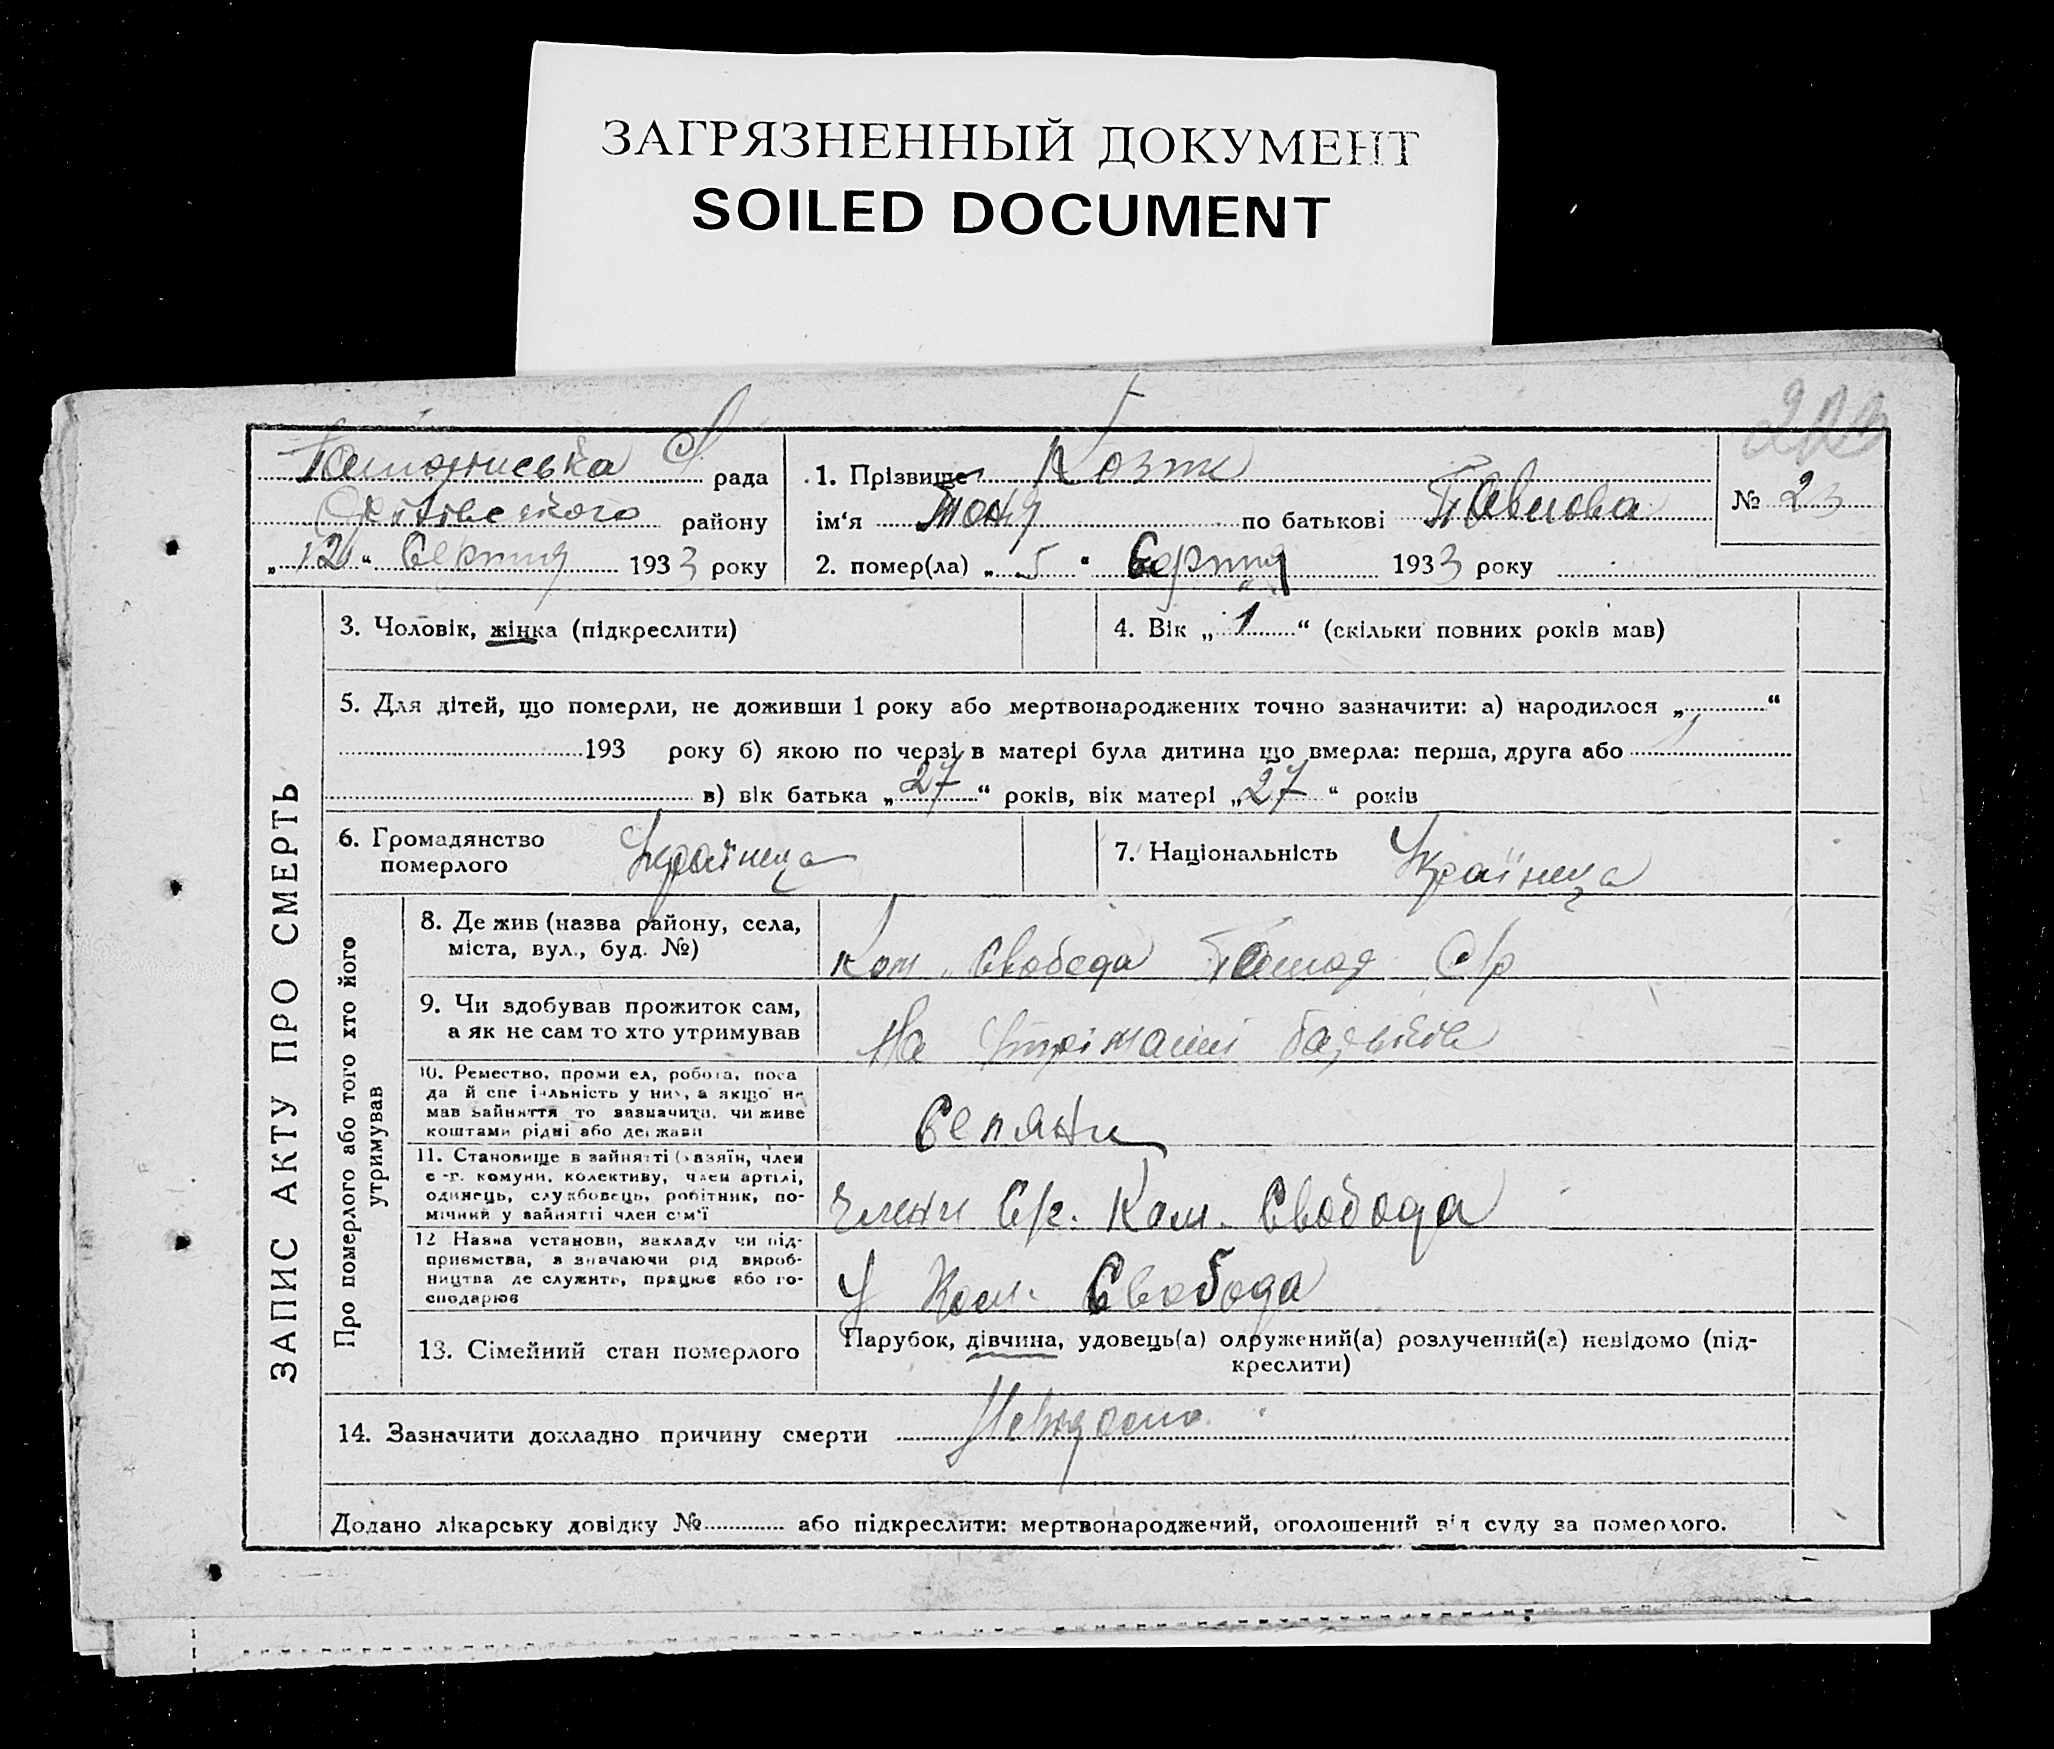 ЗАГРЯЗНЕННЫЙ ДОКУМЕНТ
SOILED DOCUMENT
рада
району
„12“ Серпня 1933 року
1. Прізвище Козик
ім‘я Тоня по батькові Павлова
№ 23
2. помер(ла) „5“ Серпня 1933 року
ЗАПИС АКТУ ПРО СМЕРТЬ
3. Чоловік, жінка (підкреслити)
4. Вік „1“ (скільки повних років мав)
5. Для дітей, що померли, не доживши 1 року або мертвонароджених точно зазначити: а) народилося „ “
193 року б) якою по черзі в матері була дитина що вмерла: перша, друга або
в) вік батька „27“ років, вік матері „27“ років
6. Громадянство
померлого
Українеца
7. Національність Українеца
Про померлого або того хто його
утримував
8. Де жив (назва району, села,
міста, вул., буд. №)
Ком. Свобода С/р
9. Чи здобував прожиток сам,
а як не сам то хто утримував
На утріманні батьків
10. Ремество, промисел, робота, поса
да й спеціальність у них, а якщо не
мав зайняття то зазначити, чи живе
коштами рідні або держави
Селяни
11. Становище в зайнятті (хазяїн, член
с-г. комуни, колективу, член артілі,
одинець, службовець, робітник, по-
мічний у зайнятті член сім'ї
Члени Ком. Свобода
12 Назва установи, закладу чи під-
приємства, зазначаючи рід вироб-
ництва де служить, працює або го-
сподарює
У Ком. Свобода
13. Сімейний стан померлого
Парубок, дівчина, удовець(а) одружений(а) розлучений(а) невідомо (під-
креслити)
14. Зазначити докладно причину смерти Невідомо
Додано лікарську довідку № або підкреслити: мертвонароджений, оголошений від суду за померлого.